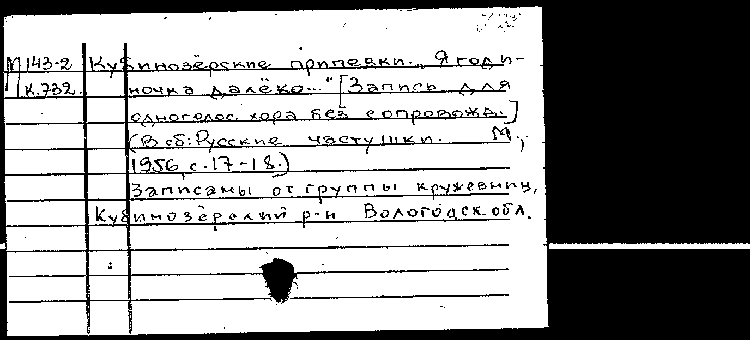 М143-2 Кубинозёрские припевки. „Ягоди-
К.732. ночка далёко..." [Запись для
одноголос. хора без сопровожд.]
(В сб: Русские частушки. М.,
1956, с. 17-18.)
Записаны от группы кружевниц,
Кубинозёрский р-н Вологодск. обл.